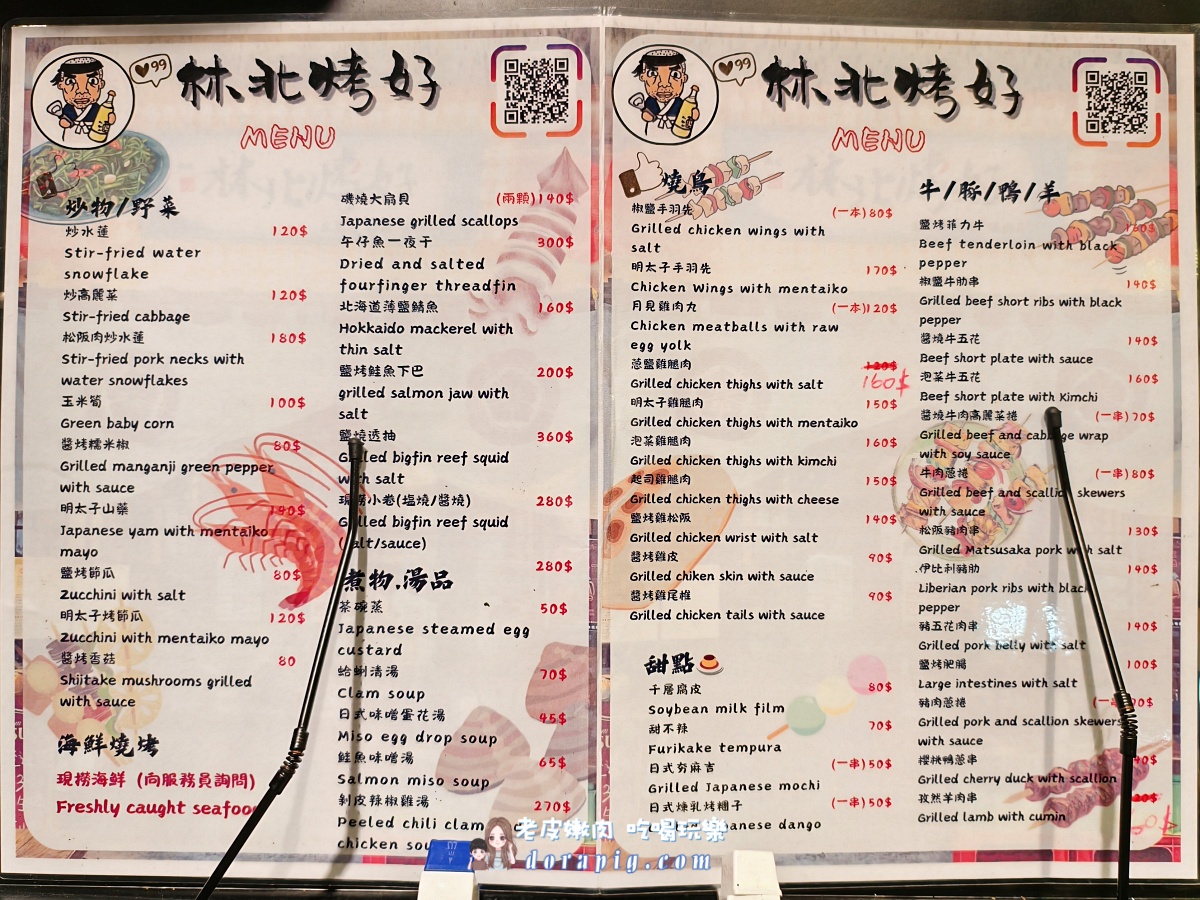 99
林北烤好
MENU
炒物/野菜
炒水蓮 120$
Stir-fried water
snowflake
炒高麗菜 120$
Stir-fried cabbage
松阪肉炒水蓮 180$
Stir-fried pork necks with
water snowflakes
玉米筍 100$
Green baby corn
醬烤糯米椒 80$
Grilled manganji green pepper
with sauce
明太子山藥
Japanese yam with mentaiko
mayo
鹽烤節瓜 80$
Zucchini with salt
明太子烤節瓜 120$
Zucchini with mentaiko mayo
醬烤香菇 80
Shiitake mushrooms grilled
with sauce
海鮮燒烤
現撈海鮮 (向服務員詢問)
Freshly caught
磯燒大扇貝 (兩顆)140$
Japanese grilled scallops
午仔魚一夜干 300$
Dried and salted
fourfinger threadfin
北海道薄鹽鯖魚 160$
Hokkaido mackerel with
thin salt
鹽烤鮭魚下巴 200$
grilled salmon jaw with
salt
鹽燒透抽 360$
Grilled bigfin reef squid
with salt
現撈小卷(塩燒/醬燒) 280$
Grilled bigfin reef squid
(salt/sauce)
280$
煮物.湯品
茶碗蒸 50$
Japanese steamed egg
custard
蛤蜊清湯 70$
Clam soup
日式味噌蛋花湯 45$
Miso egg drop soup
鮭魚味噌湯 65$
Salmon miso soup
剝皮辣椒雞湯 270$
Peeled chili clam
chicken
99
林北烤好
MENU
燒鳥
椒鹽手羽先 (一本)80$
Grilled chicken wings with
salt
明太子手羽先 170$
Chicken Wings with mentaiko
月見雞肉丸 (一本)120$
Chicken meatballs with raw
egg yolk
蔥鹽雞腿肉 120$
160$
Grilled chicken thighs with salt
明太子雞腿肉 150$
Grilled chicken thighs with mentaiko
泡菜雞腿肉 160$
Grilled chicken thighs with kimchi
起司雞腿肉 150$
Grilled chicken thighs with cheese
鹽烤雞松阪 140$
Grilled chicken wrist with salt
醬烤雞皮 90$
Grilled chiken skin with sauce
醬烤雞尾椎 90$
Grilled chicken tails with sauce
甜點
千層腐皮 80$
Soybean milk film
甜不辣 70$
Furikake tempura
日式夯麻吉 (一串)50$
Grilled Japanese mochi
日式煉乳烤糰子 (一串)50$
Japanese dango
牛/豚/鴨/羊
鹽烤菲力牛 160$
Beef tenderloin with black
pepper
椒鹽牛肋串 190$
Grilled beef short ribs with black
pepper
醬燒牛五花 140$
Beef short plate with sauce
泡菜牛五花 160$
Beef short plate with Kimchi
醬燒牛肉高麗菜捲 (一串)70$
Grilled beef and cabbage wrap
with soy sauce
牛肉蔥捲 (一串)80$
Grilled beef and scallion skewers
with sauce
松阪豬肉串 130$
Grilled Matsusaka pork with salt
伊比利豬肋 190$
Liberian pork ribs with black
pepper
豬五花肉串 140$
Grilled pork belly with salt
鹽烤肥腸 100$
Large intestines with salt
豬肉蔥捲
Grilled pork and scallion skewers
with sauce
櫻桃鴨蔥串
Grilled cherry duck with scallion
孜然羊肉串
Grilled lamb with cumin
老皮嫩肉 吃喝玩樂
dorapig.com